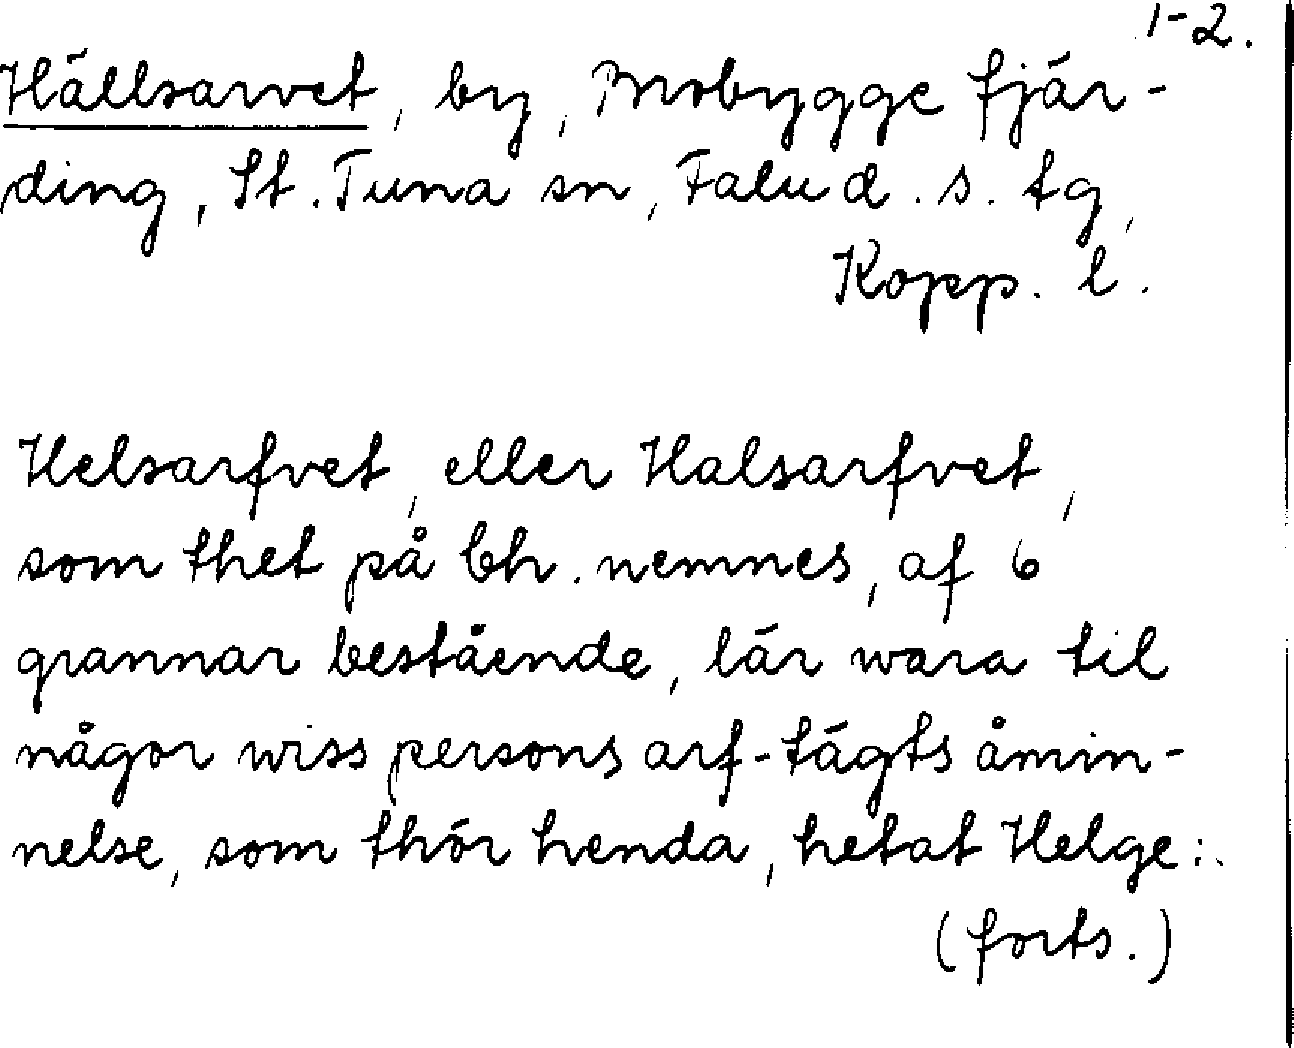 1-2.
Hällsarvet, by, Mobygge fjär-
ding, St. Tuna sn, Falu d. s. tg,
Kopp. l.
Helsarfvet, eller Halsarfvet,
som thet på bh. nemnes, af 6
grannar bestående, lär wara til
någor wiss persons arf-tägts åmin-
nelse, som thör henda, hetat Helge:.
(forts.)